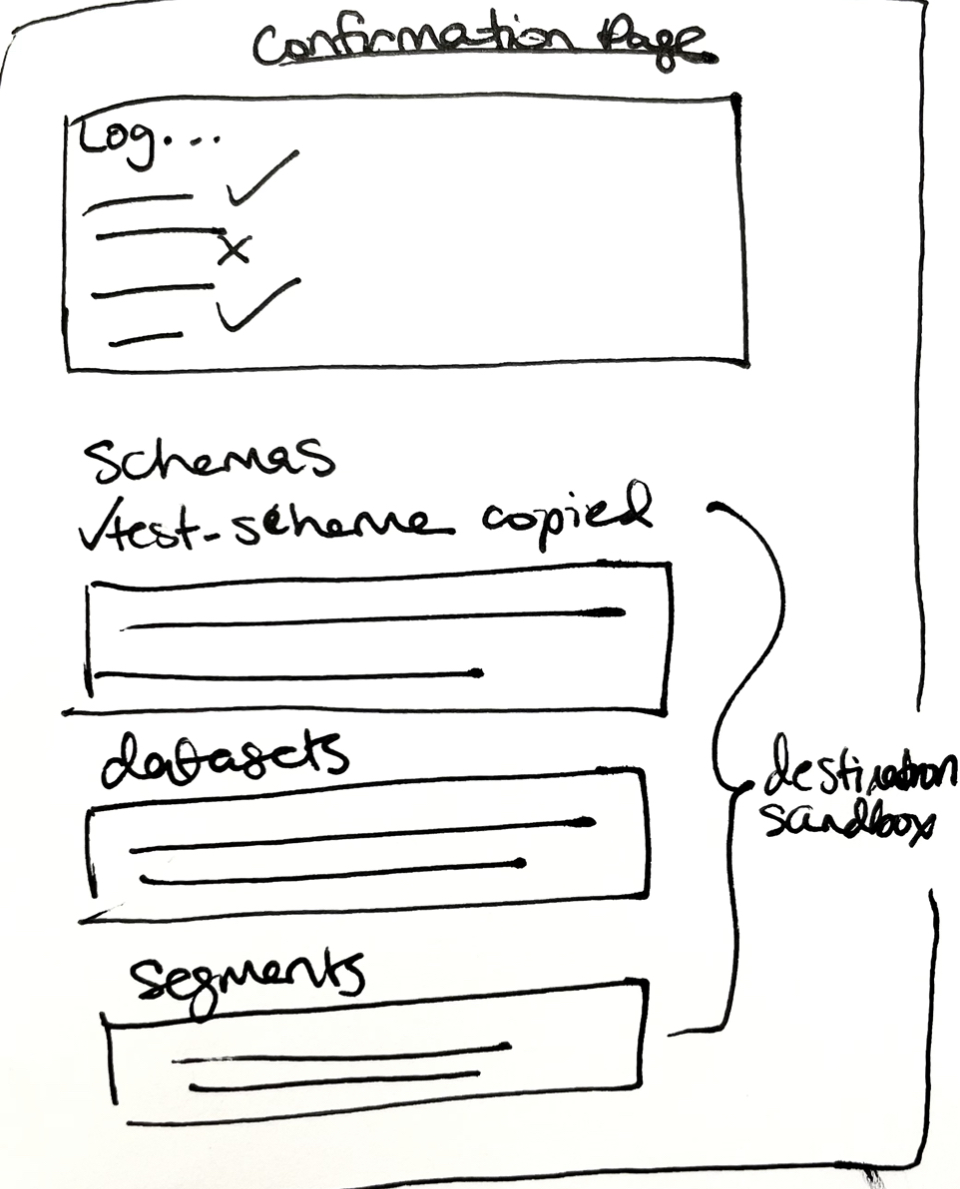 Confirmation Page
Log...
✓
x
✓
Schemas
✓test-scheme copied
datasets
segments
destination
sandbox